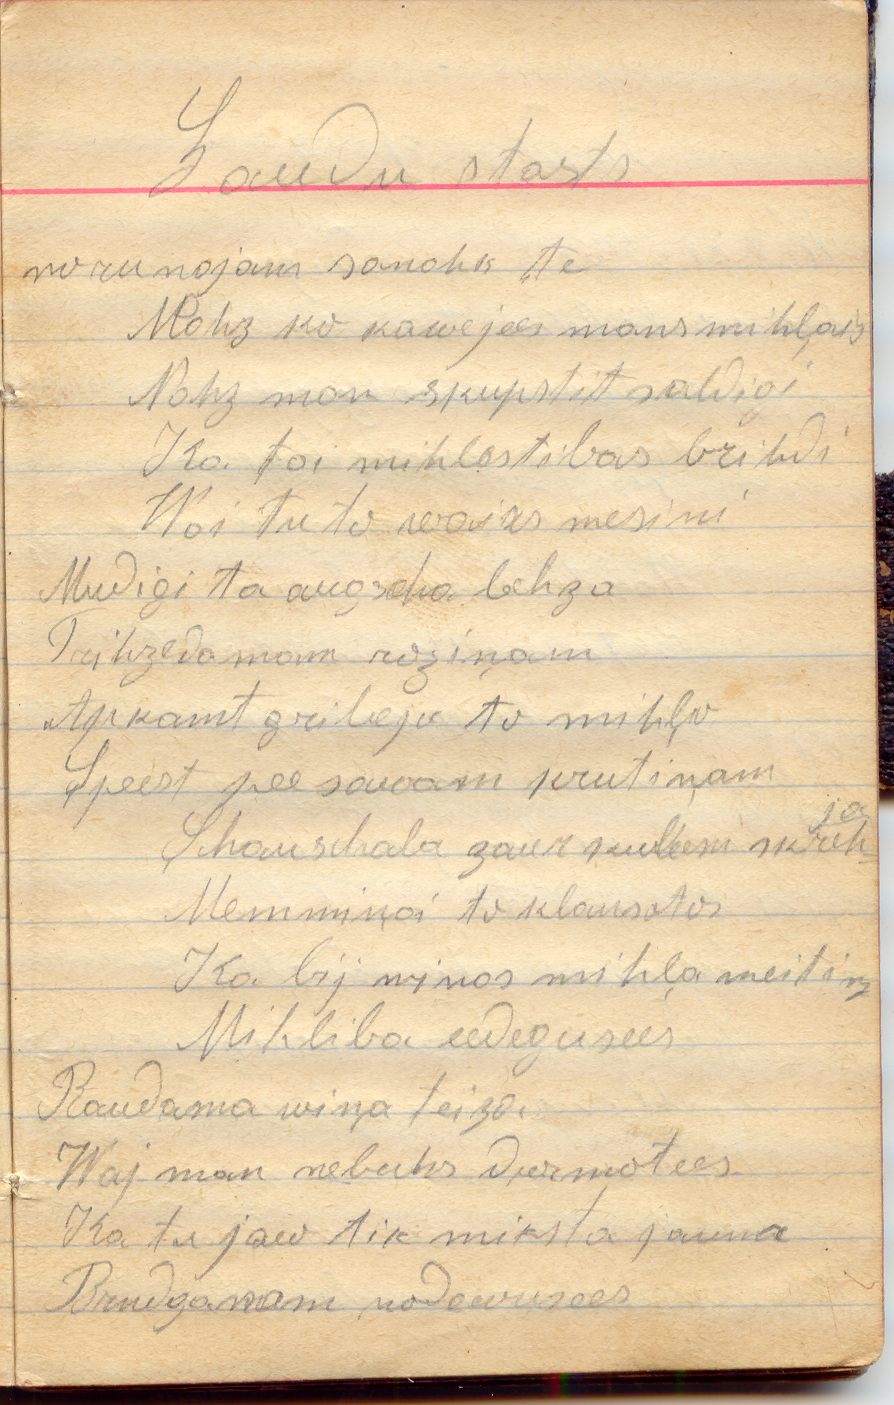 Laudu stasts
norunajam sanahk te
Nahz ko kawejees mans mihļais
Nahz man skupstit saldigi
Ka tai mihlestibas brihdi
Woi tu to wairs nesini
Mudigi ta augscha lehza
Trihzedamam roziņam
Apkamt gribeja to mihļo
Speest pee sawam krutiņam
Schauschala zaur kauleem skreh=
ja
Memmiņai to klausotos
Ka bij wiņas mihļa meitiņ
Mihliba eedegusees
Raudama wiņa teiza.
Waj man nebuhs dusmotees
Ka tu jaw tik miksta jauna
Brudganam nodewusees